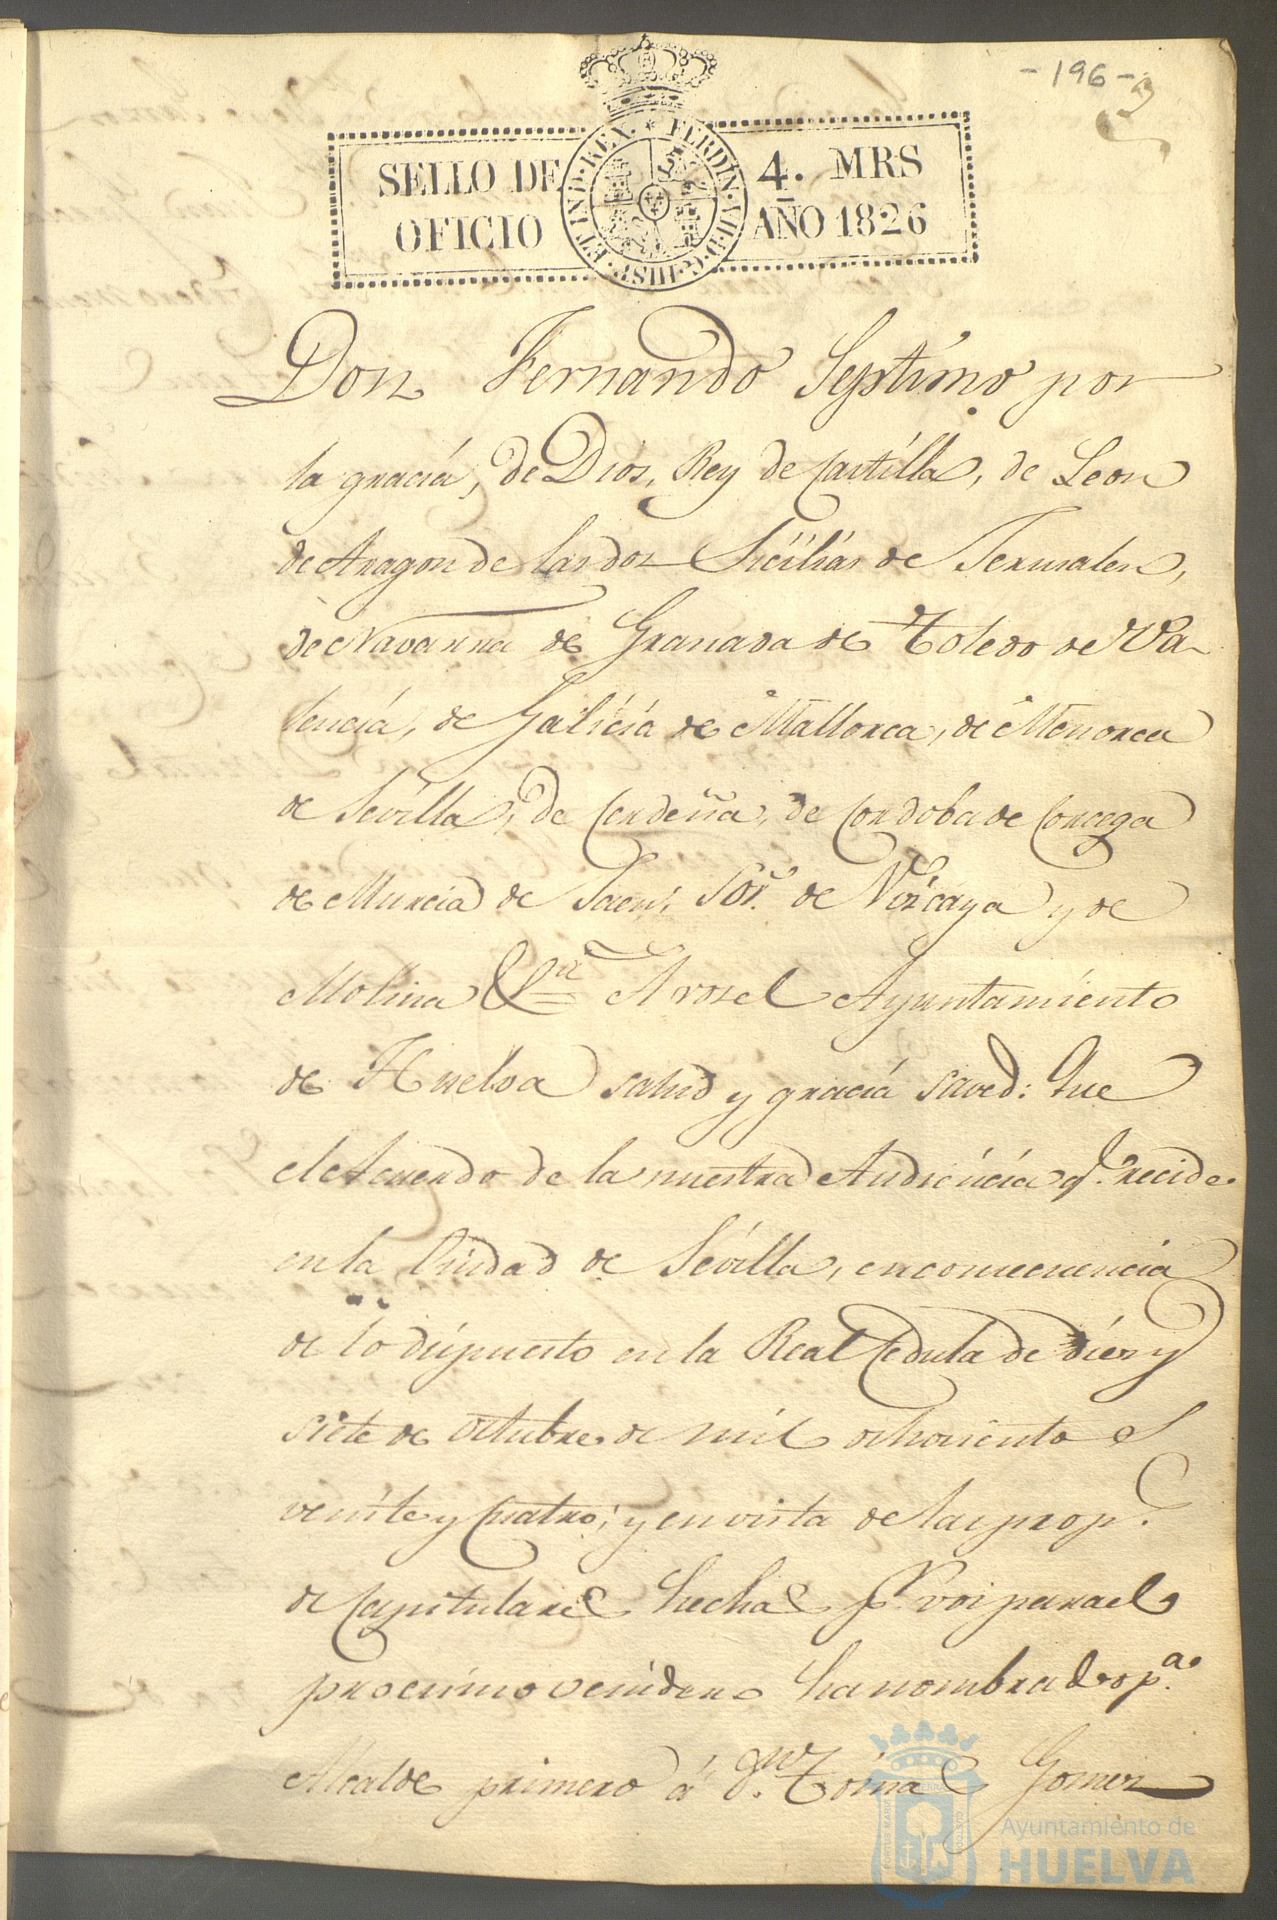 - 196 -
SELLO DE 4. MRS
OFICIO AÑO 1826
FERDIN. VII. D. G. HISP. ET IND. REX.
Don Fernando Septimo por
la gracia, de Dios, Rey de Castilla, de Leon
de Aragon de las dos Sicilias de Jerusalen,
de Navarra de Granada de Toledo de Va-
lencia, de Galicia de Mallorca, de Menorca
de Sevilla, de Cerdeña, de Cordoba de Corcega
de Murcia de Jaen, Sõr. de Vizcaya y de
Molina &ra A vos el Ayuntamiento
de Huelva salud y gracia saved: Que
el Acuerdo de la nuestra Audiencia q.e recide
en la Ciudad de Sevilla, en consecuencia
de lo dispuesto en la Real Cedula de diez y
siete de octubre de mil ochocientos
veinte y cuatro; y en vista de las prop.s
de Capitulares hechas p.r vos para el
procsimo venidero ha nombrado p.a
Alcalde primero á d.n Tomas Gomez
Ayuntamiento de
HUELVA